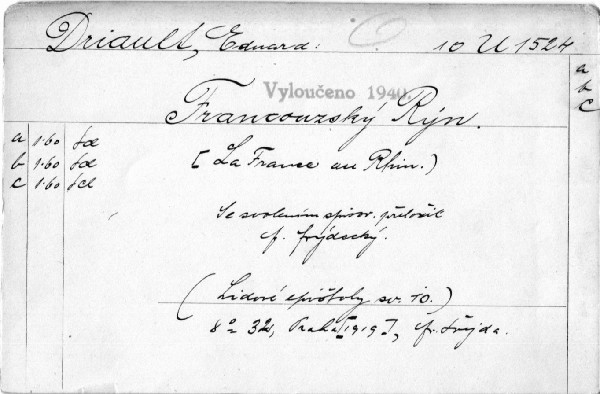 Driault, Eduard: 10 U 1524
a
b
c
Vyloučeno 1940.
Francouzský Rýn.
a 1·60
b 1·60
c 1·60
[La France au Rhin.)
Se svolením spisov. přeložil
(Lidové epištoly sv. 10.)
8° 32, Praha [1919],